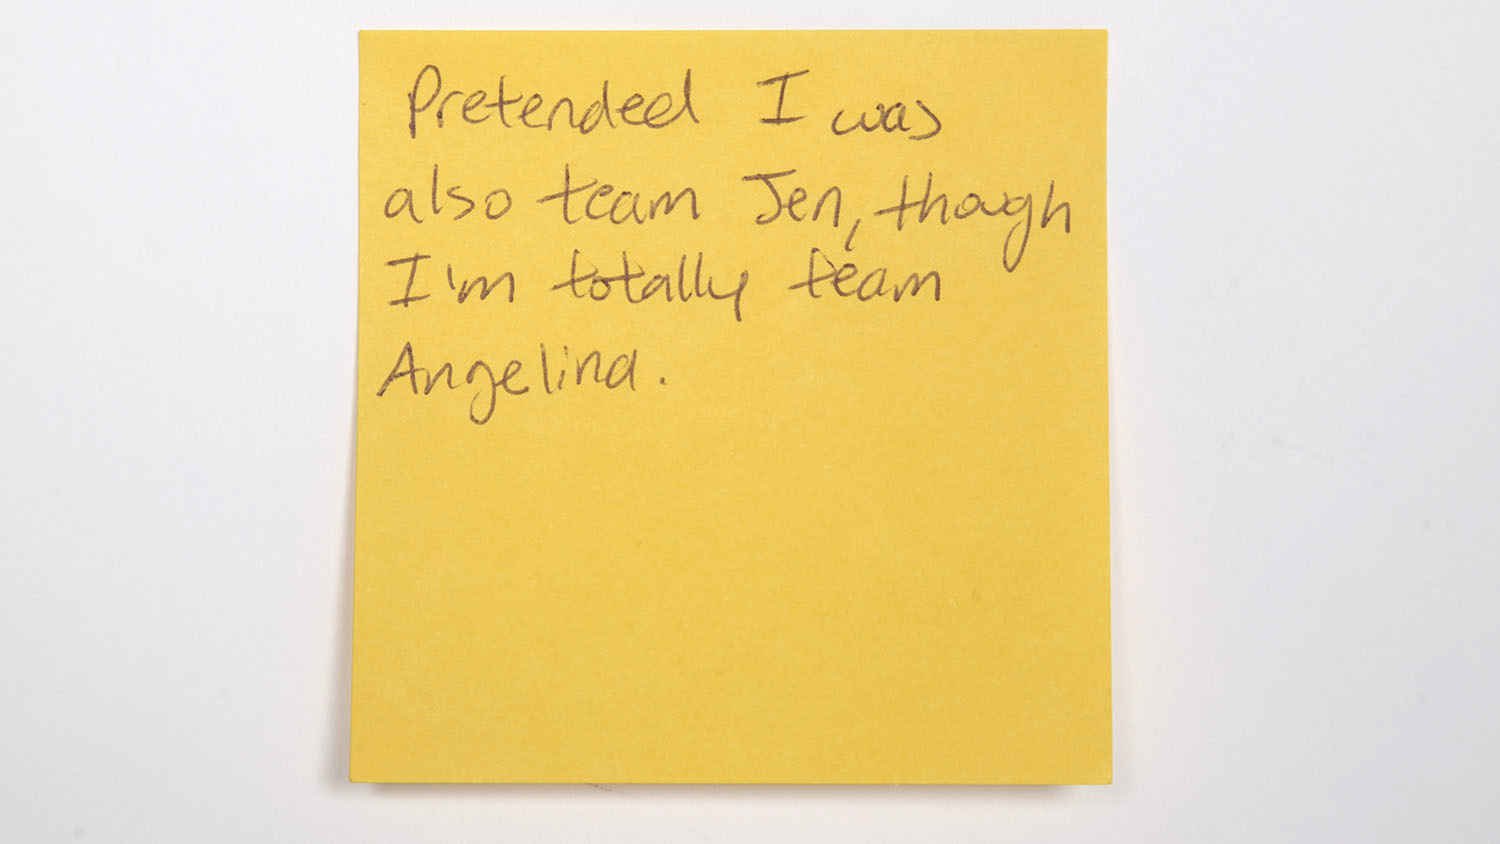 Pretended I was
also team Jen, though
I'm totally team
Angelina.